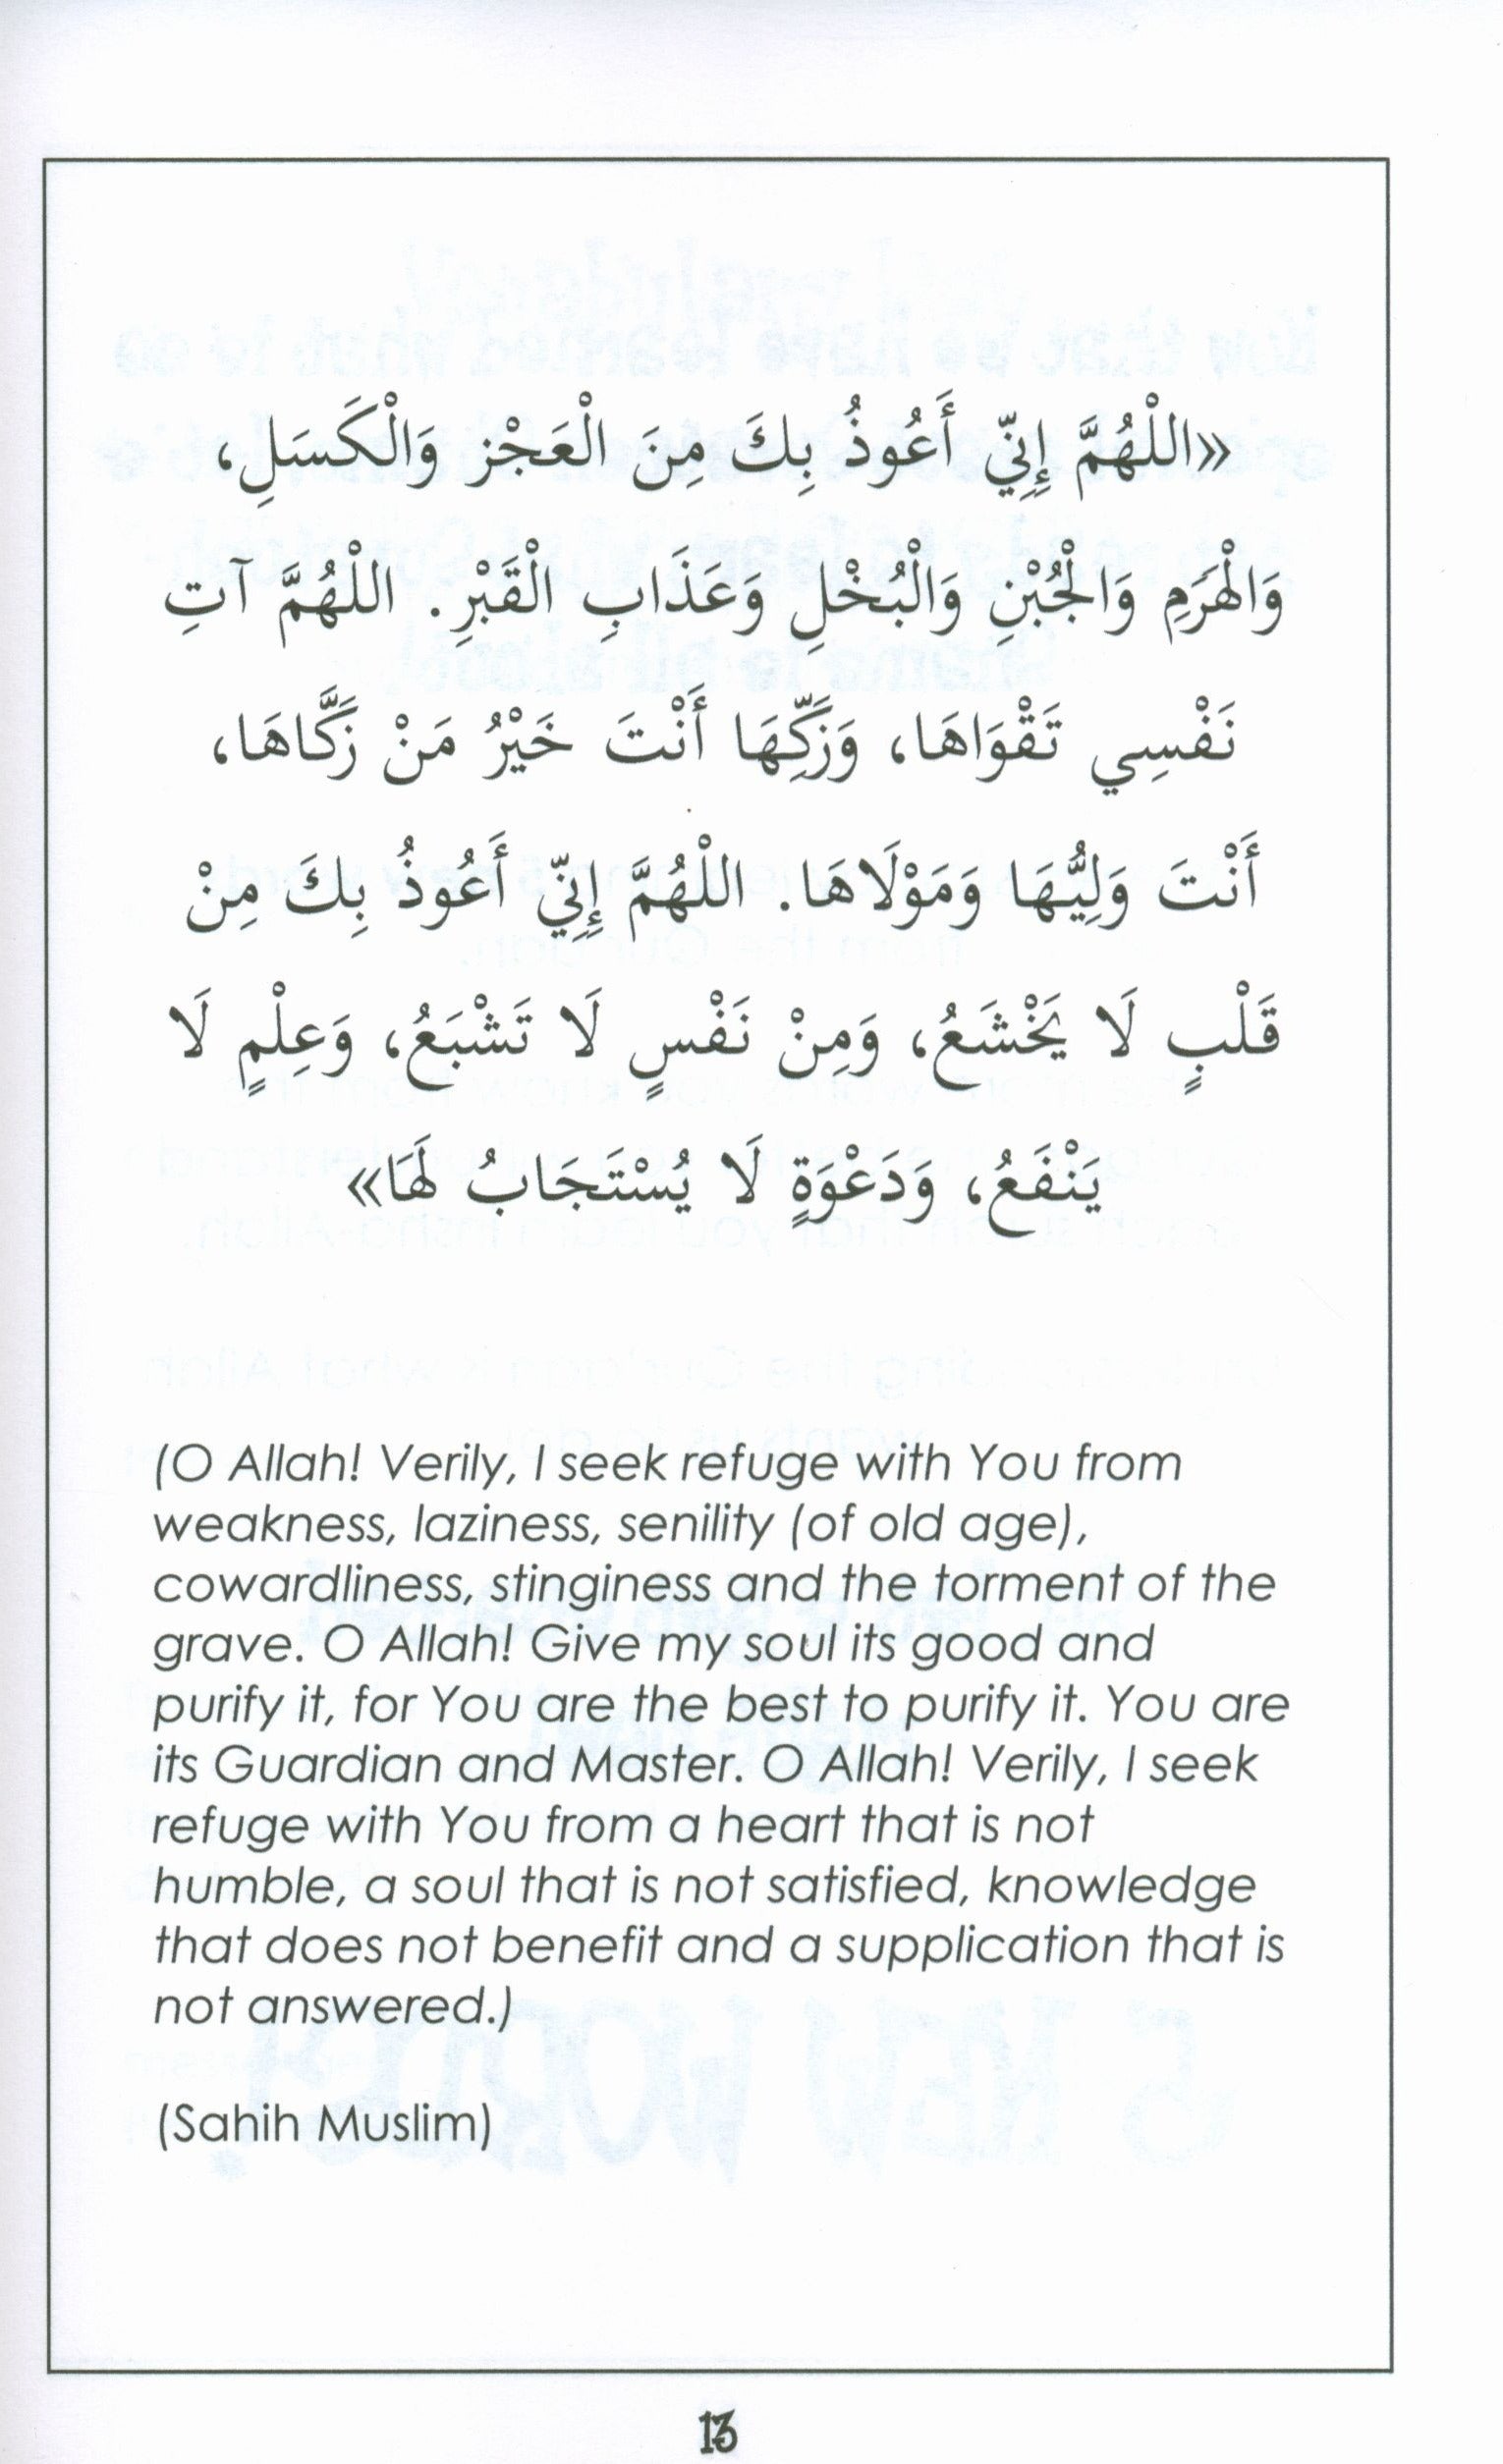 «اللْهُمَّ إِنِّي أَعُوذُ بِكَ مِنَ الْعَجْزِ وَالْكَسَلِ،
وَالْهَرَمِ وَالْجُبْنِ وَالْبُخْلِ وَعَذَابِ الْقَبْرِ. اللْهُمَّ آتِ
نَفْسِي تَقْوَاهَا، وَزَكِّهَا أَنْتَ خَيْرُ مَنْ زَكَّاهَا،
أَنْتَ وَلِيُّهَا وَمَوْلَاهَا. اللْهُمَّ إِنِّي أَعُوذُ بِكَ مِنْ
قَلْبٍ لَا يَخْشَعُ، وَمِنْ نَفْسٍ لَا تَشْبَعُ، وَعِلْمٍ لَا
يَنْفَعُ، وَدَعْوَةٍ لَا يُسْتَجَابُ لَهَا»
(O Allah! Verily, I seek refuge with You from
weakness, laziness, senility (of old age),
cowardliness, stinginess and the torment of the
grave. O Allah! Give my soul its good and
purify it, for You are the best to purify it. You are
its Guardian and Master. O Allah! Verily, I seek
refuge with You from a heart that is not
humble, a soul that is not satisfied, knowledge
that does not benefit and a supplication that is
not answered.)
(Sahih Muslim)
13